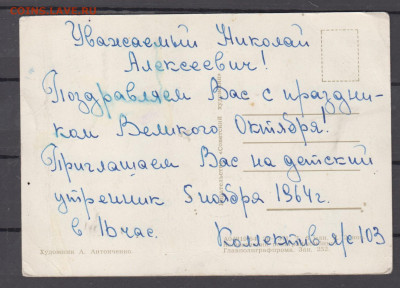 COINS.SU
Уважаемый Николай
Алексеевич!
Поздравляем Вас с праздни-
ком Великого Октября!
Приглашаем Вас на детский
утренник 5 ноября 1964 г.
в 10 час.
Коллектив я/с 103
Художник А. Антонченко.